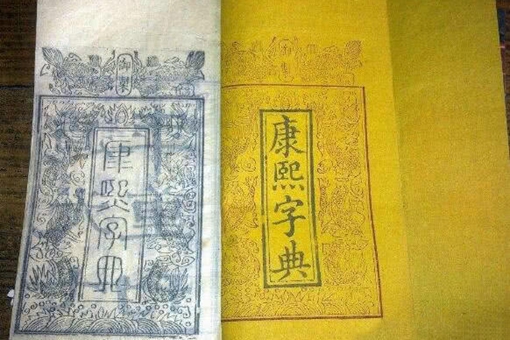 御製
康熙字典
康熙字典